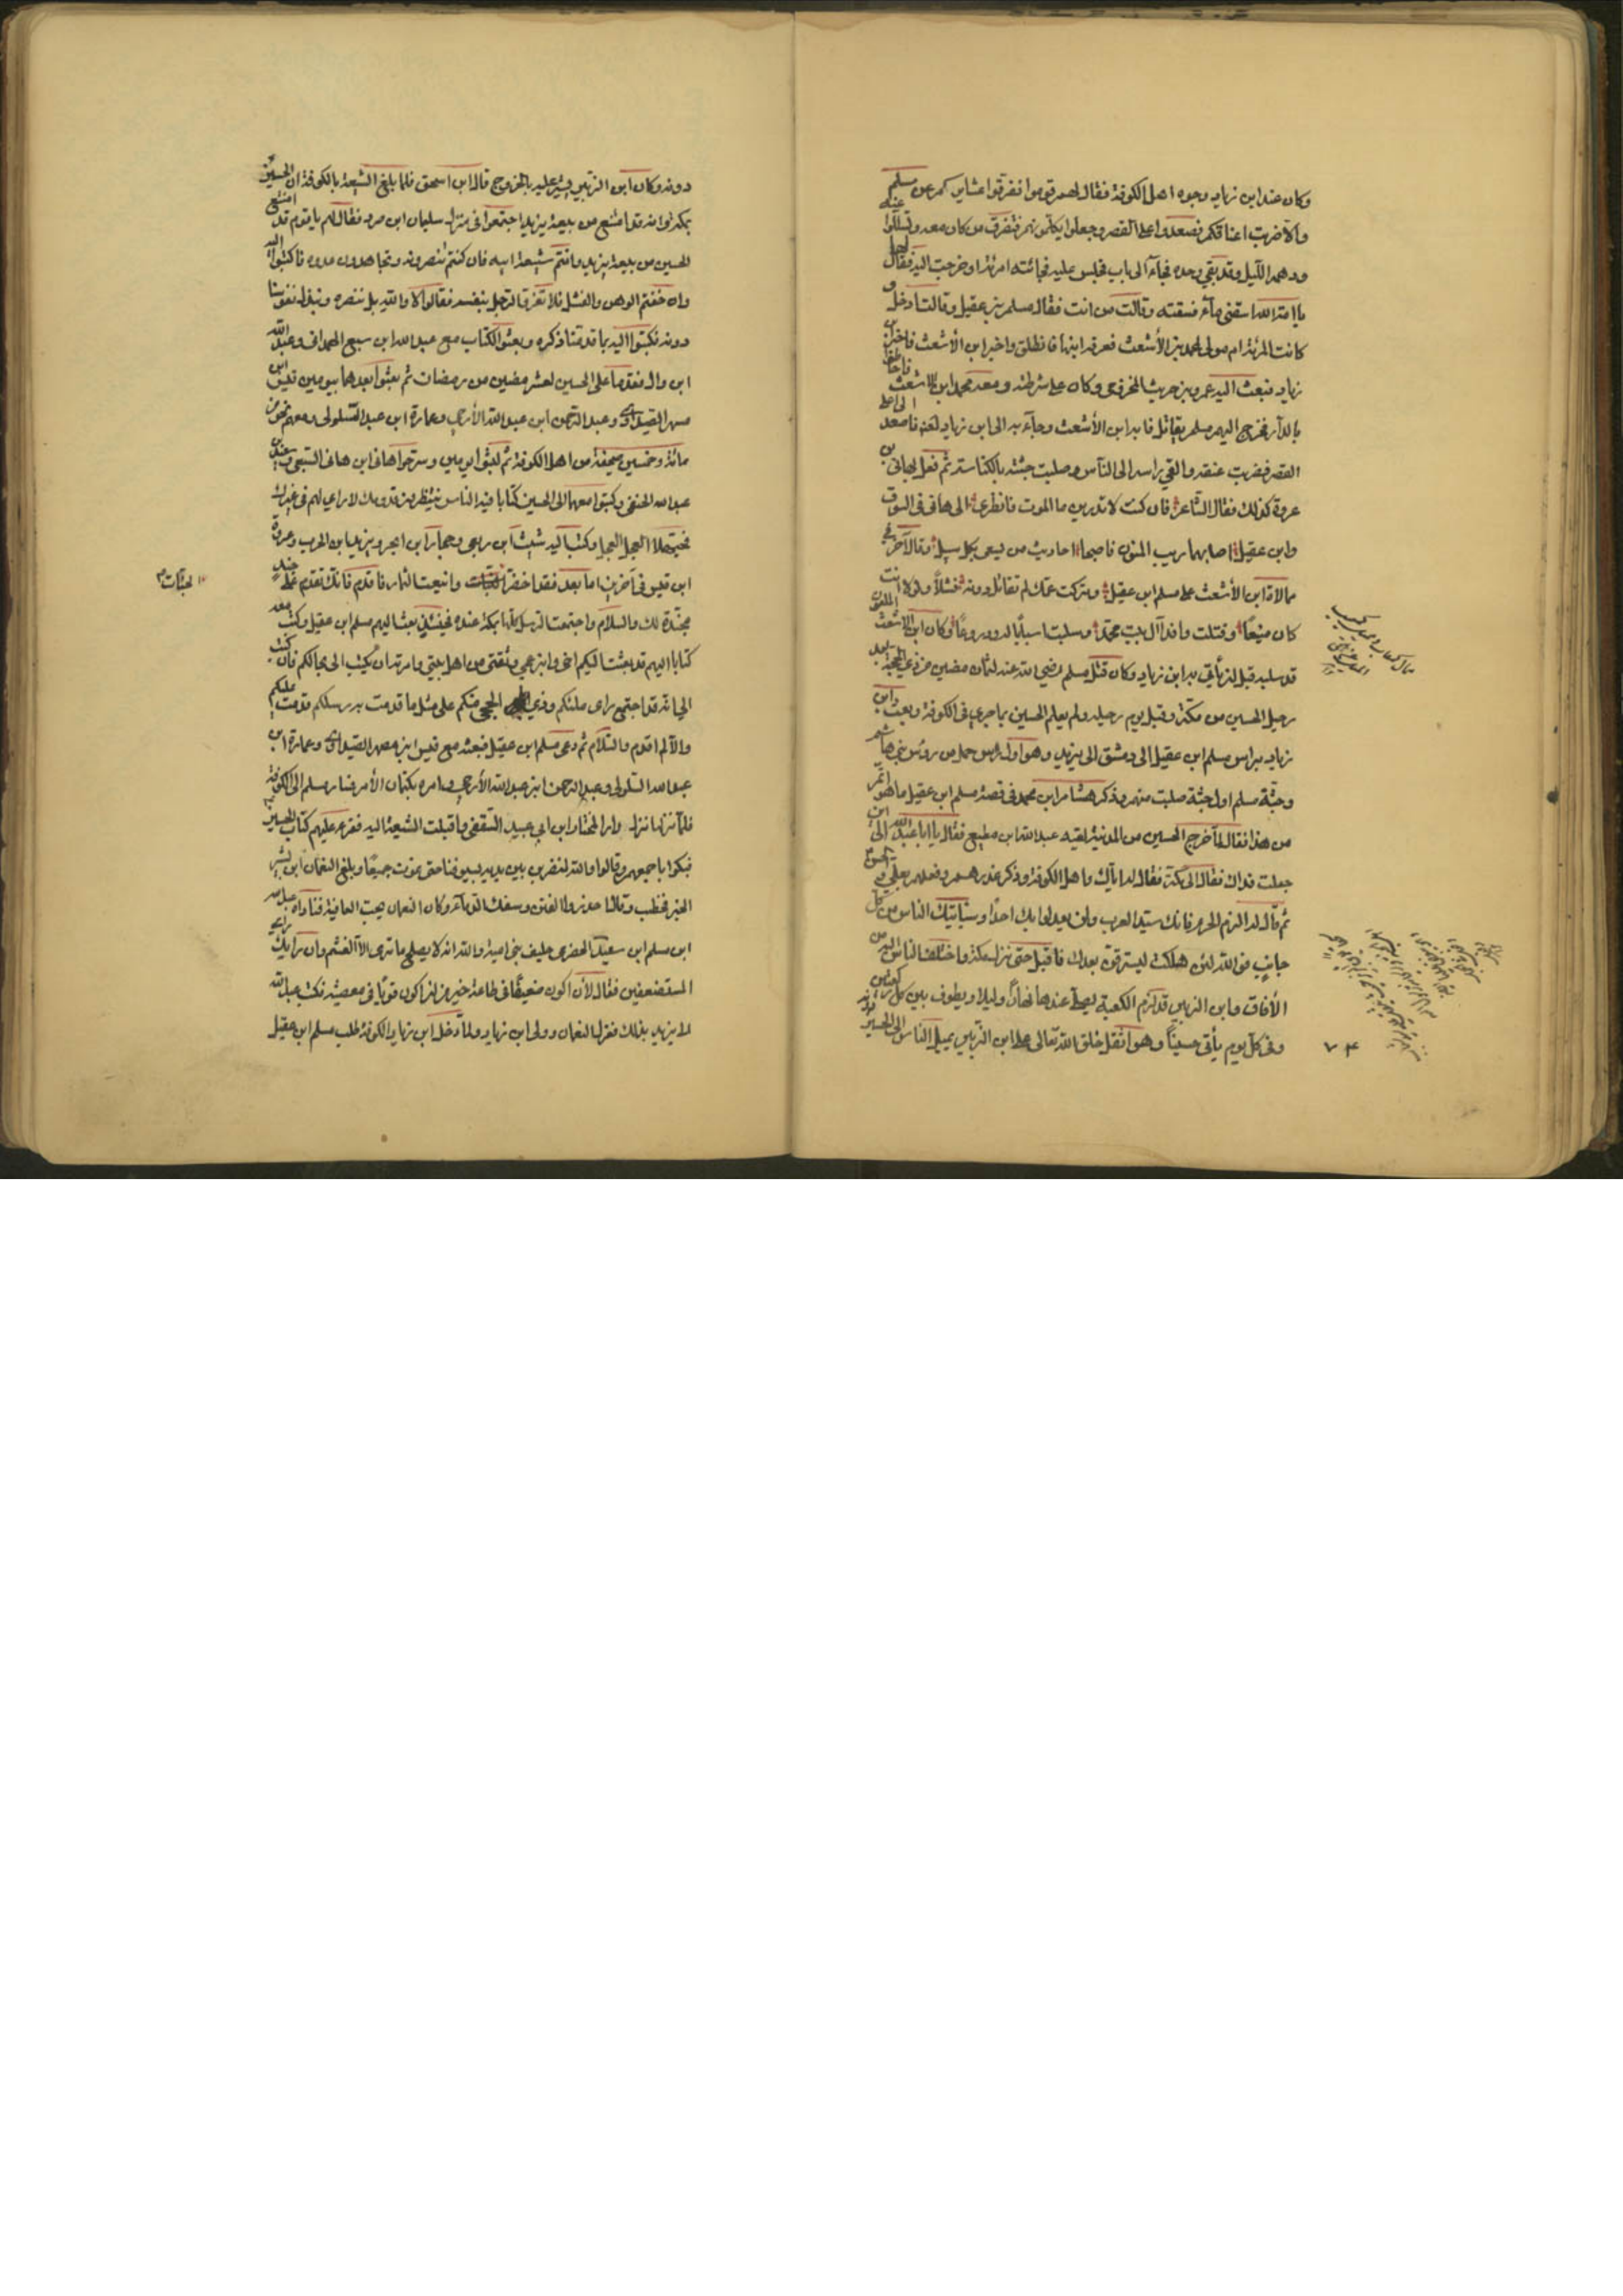 وكان عند ابن زياد وجوه اهل الكوفة فقال لهم قوموا ففرقوا عشايركم عن مسلم
والا ضربت اعناقكم فصعدوا على القصر وجعلوا يكلمونهم فتفرق من كان معه وتسللوا عنه
ودهمه الليل وقد بقي وحده فجاء الى باب فجلس عليه فجائته امرئة وخرجت اليه فقال لها
يا امة الله اسقني ماء فسقته وقالت من انت فقال مسلم بن عقيل وقالت ادخل و
كانت المرئة ام مولى لمحمد بن الأشعث فعرفه ابنها فانطلق واخبر ابن الأشعث فاخبر ابن
زياد فبعث اليه عمرو بن حريث المخزومي وكان على شرطته ومعه محمد ابن الاشعث فاحاطوا
بالدار فخرج اليهم مسلم يقاتل فا به ابن الأشعث وجاء به الى ابن زياد لعنه فاصعد الى اعلى
القصر فضربت عنقه والقي راسه الى الناس وصلبت جثته بالكناسة ثم فعل بهاني بن
عروة كذلك فقال الشاعر فان كنت لا تدرين ما الموت فانظري الى هاني في السوق
وابن عقيل اصابهما ريب المنون فاصبحا احاديث من يسعى بكل سبيل وقال آخر في
ممالاة ابن الأشعث على مسلم ابن عقيل وتركت عمك لم تقاتل دونه فشلا ولولا انت
كان منيعًا وقتلت وافد آل بيت محمد وسلبت اسيافا له ودروعًا وكان ابن الاشعث الملعون
قد سلبه قبل ان يأتي به ابن زياد وكان قتل مسلم رضي الله عنه لثمان مضين من ذي الحجة بعد
رحيل الحسين من مكة وقبل يوم رحيله ولم يعلم الحسين بما جرى في الكوفة وبعث ابن
زياد براس مسلم ابن عقيل الى دمشق الى يزيد وهو اول راس حمل من رؤس بني هاشم
وجثة مسلم اول جثة صلبت منهم وذكر هشام ابن محمد في قصة مسلم ابن عقيل ما هو اتم
من هذا فقال لما خرج الحسين من المدينة لقيه عبد الله ابن مطيع فقال يا ابا عبد الله الى اين
جعلت فداك فقال الى مكة فقال له اياك واهل الكوفة وذكر غدرهم وفعلهم بعلي والحسن
ثم قال له الزم الحرم فانك سيد العرب ولن يعدلوا بك احدًا وسيأتيك الناس من كل
جانب فو الله لئن هلكت ليسترقن بعدك فاقبل حتى نزل مكة واختلف الناس اليه من
الأفاق وابن الزبير قد لزم الكعبة يصلي عندها نهارًا وليلا ويطوف بين
وفي كل يوم يأتي حسينًا وهو اثقل خلق الله تعالى على ابن الزبير يميل الناس الى الحسين
٧٤
دونه وكان ابن الزبير يشير عليه بالخروج قال ابن اسحق فلما بلغ الشيعة بالكوفة ان الحسين
بمكة وانه قد امتنع من بيعة يزيد اجتمعوا في منزل سليمان ابن صرد فقال لهم يا قوم قد امتنع
الحسين من بيعة يزيد وانتم شيعة ابيه فان كنتم تنصرونه وتجاهدون عدوه فاكتبوا اليه
وان خفتم الوهن والفشل فلا تغروا الرجل بنفسه فقالوا لا والله بل ننصره ونبذل نفوسنا
دونه فكتبوا اليه بما قدمنا ذكره وبعثوا الكتاب مع عبد الله ابن سبيع الهمداني وعبد الله
ابن وال فقدما على الحسين لعشر مضين من رمضان ثم بعثوا بعدهما بيومين قيس ابن
مسهر الصيداوي وعبد الرحمن ابن عبد الله الأرحبي وعمارة ابن عبد السلولي ومعهم نحو من
مائة وخمسين صحيفة من اهل الكوفة ثم لبثوا يومين وسرحوا هاني ابن هاني السبيعي وسعيد بن
عبد الله الحنفي وكتبوا معهما الى الحسين كتابا فيه الناس ينتظرون قدومك لا راي لهم في غيرك
فحيهلا العجل العجل وكتب اليه شبث ابن ربعي وحجار ابن ابجر ويزيد ابن الحرب وعروة
ابن قيس في آخرين اما بعد فقد اخضر الجنبات واينعت الثمار فاقدم فانك تقدم على جند
مجندة لك والسلام واجتمعت الرسل كلها بمكة عنده فحينئذ بعث اليهم مسلم ابن عقيل وكتب معه
كتابا اليهم قد بعثت اليكم اخي وابن عمي وثقتي من اهل بيتي وامرته ان يكتب الى بحالكم فان كتب
الي انه قد اجتمع راى ملئكم وذوي الحجى منكم على مثل ما قدمت به رسلكم قدمت عليكم
والا لم اقدم والسلام ثم دعى مسلم ابن عقيل فبعثه مع قيس ابن مسهر الصيداوي وعمارة ابن
عبد الله السلولي وعبد الرحمن ابن عبد الله الأرحبي وامره بكتمان الأمر فسار مسلم الى الكوفة
فلما نزلها نزل دار المختار ابن ابي عبيد الثقفي واقبلت الشيعة اليه فقرء عليهم كتاب الحسين
فبكوا باجمعهم وقالوا والله لنضربن بين يديه بسيوفنا حتى نموت جميعًا وبلغ النعمان ابن بشير
الخبر فخطب وقال احذروا الفتن وسفك الدماء وكان النعمان يحب العافية فناداه عبد الله
ابن مسلم ابن سعيد الحضرمي حليف بني امية والله انه لا يصلح ما ترى الا الغشم وان رايك راي
المستضعفين فقال لأن اكون ضعيفًا في طاعة خير من ان اكون قويًا في معصية فكتب عبد الله
الى يزيد بذلك فعزل النعمان وولى ابن زياد ولما دخل ابن زياد الكوفة طلب مسلم ابن عقيل